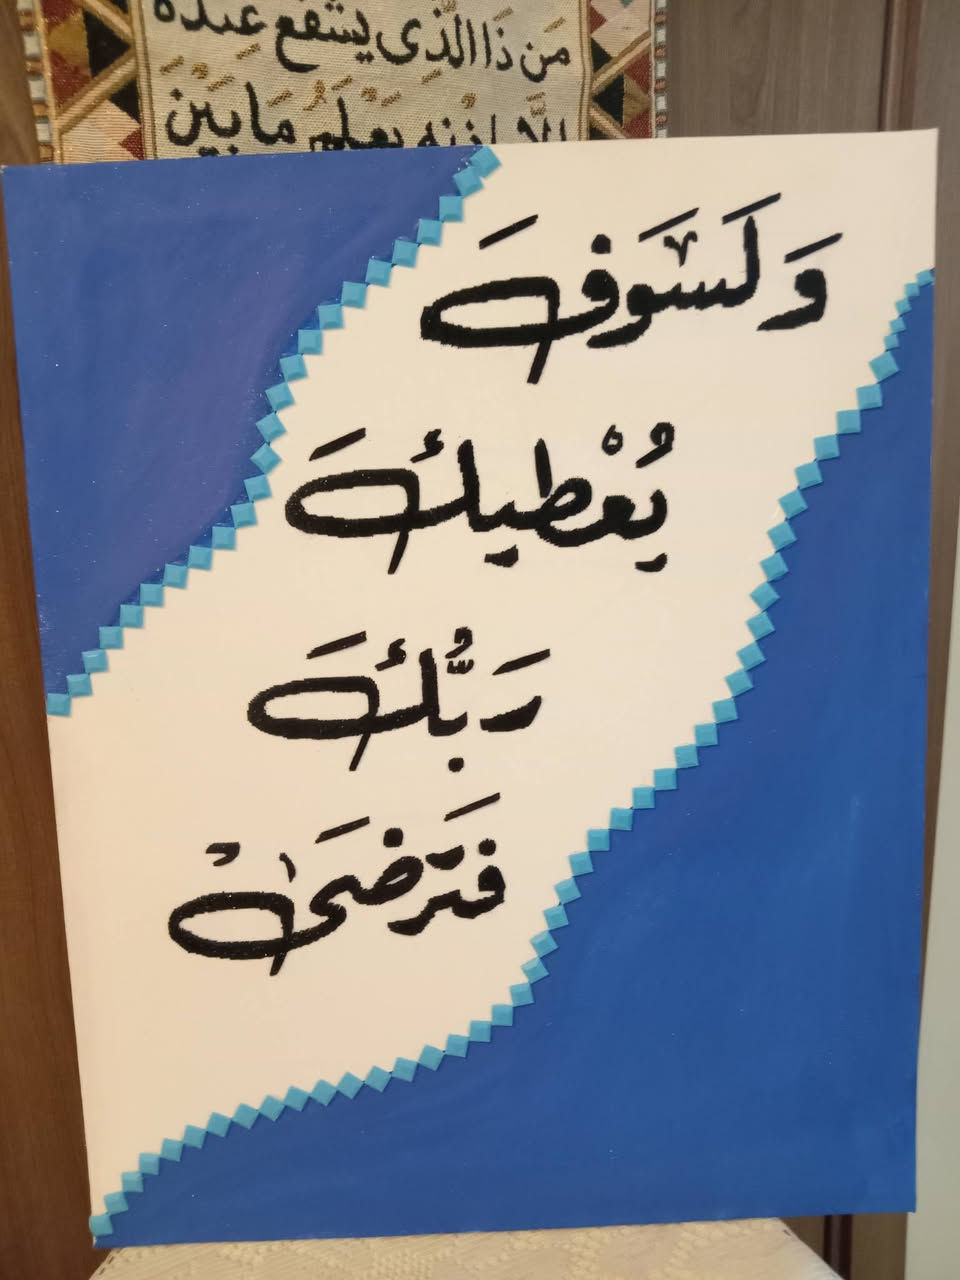 من ذا الذي يشفع عنده
إلا بإذنه يعلم ما بين
وَلَسَوْفَ
يُعْطِيكَ
رَبُّكَ
فَتَرْضَىٰ